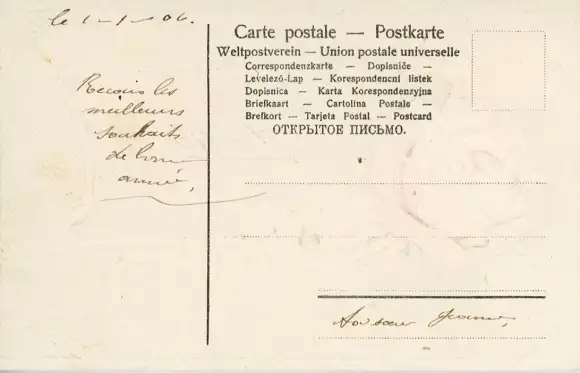 le 1-1-06.
Reçois les
meilleurs
souhaits
de bonne
année,
Carte postale — Postkarte
Weltpostverein — Union postale universelle
Correspondenzkarte — Dopisniče —
Levelező-Lap — Korespondencni listek
Dopisnica — Karta Korespondenzyjna
Briefkaart — Cartolina Postale —
Brefkort — Tarjeta Postal — Postcard
ОТКРЫТОЕ ПИСЬМО.
Ta sœur Jeanne,